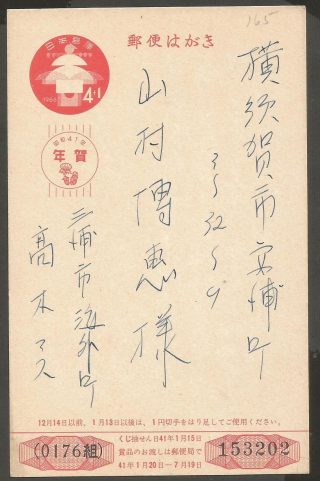 165
日本郵便
1966
4+1
郵便はがき
昭和41年
年賀
横須賀市安浦町
3〜32〜9
山村博恵様
三浦市海外町
高木マス
12月14日以前、1月13日以後は、1円切手をはり足してご使用ください。
(0176組)
くじ抽せん日41年1月15日
賞品のお渡しは郵便局で
41年1月20日―7月19日
153202